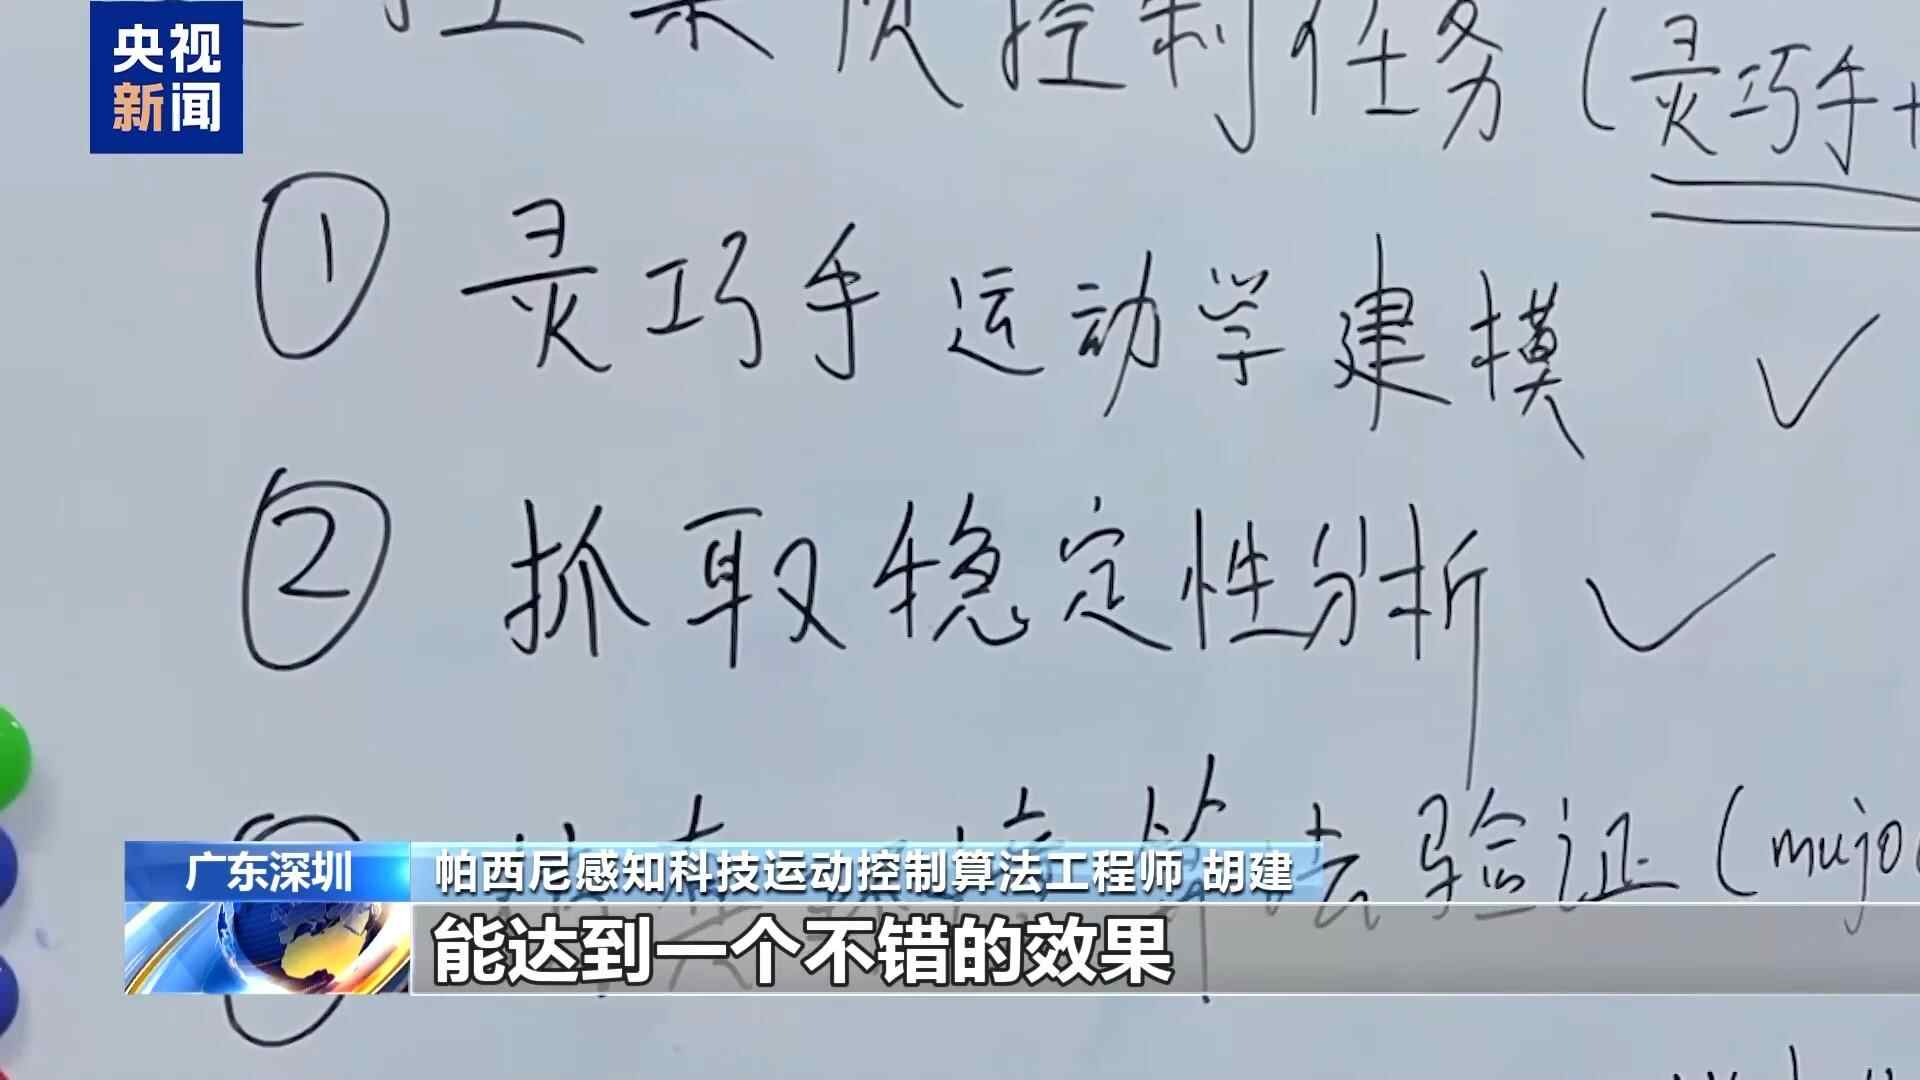 央视
新闻
控制任务(灵巧手+
① 灵巧手运动学建模 ✓
② 抓取稳定性分析 ✓
算法验证(mujo
广东深圳
帕西尼感知科技运动控制算法工程师 胡建
能达到一个不错的效果